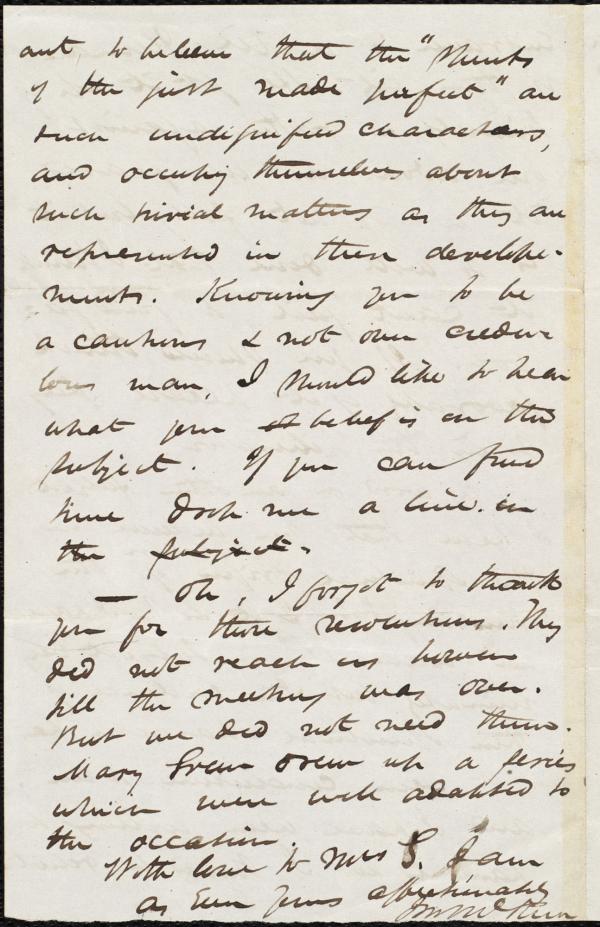 ant, to believe that the "spirits
of the just made perfect" are
such undignified characters,
and occupy themselves about
such trivial matters as they are
represented in these develope-
ments. Knowing you to be
a cautious & not over credu-
lous man, I should like to hear
what your belief is on this
subject. If you can find
time drop me a line on
the subject.
— Oh, I forgot to thank
you for those resolutions. They
did not reach us however
till the meeting was over.
But we did not need them.
Mary Grew drew up a series
which were well adapted to
the occasion.
With love to Mrs G. I am
as Ever Yours affectionately
J. M. McKim